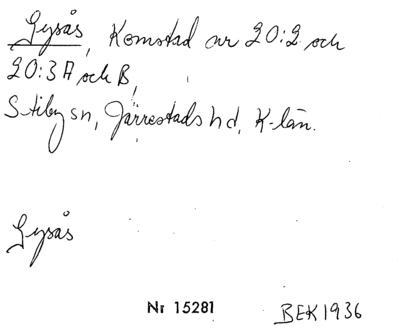 Gysås, Komstad nr 20:2 och
20:3 A och B,
Stiby sn, Järrestads hd, K-län.
Gysås
Nr 15281
BEK 1936